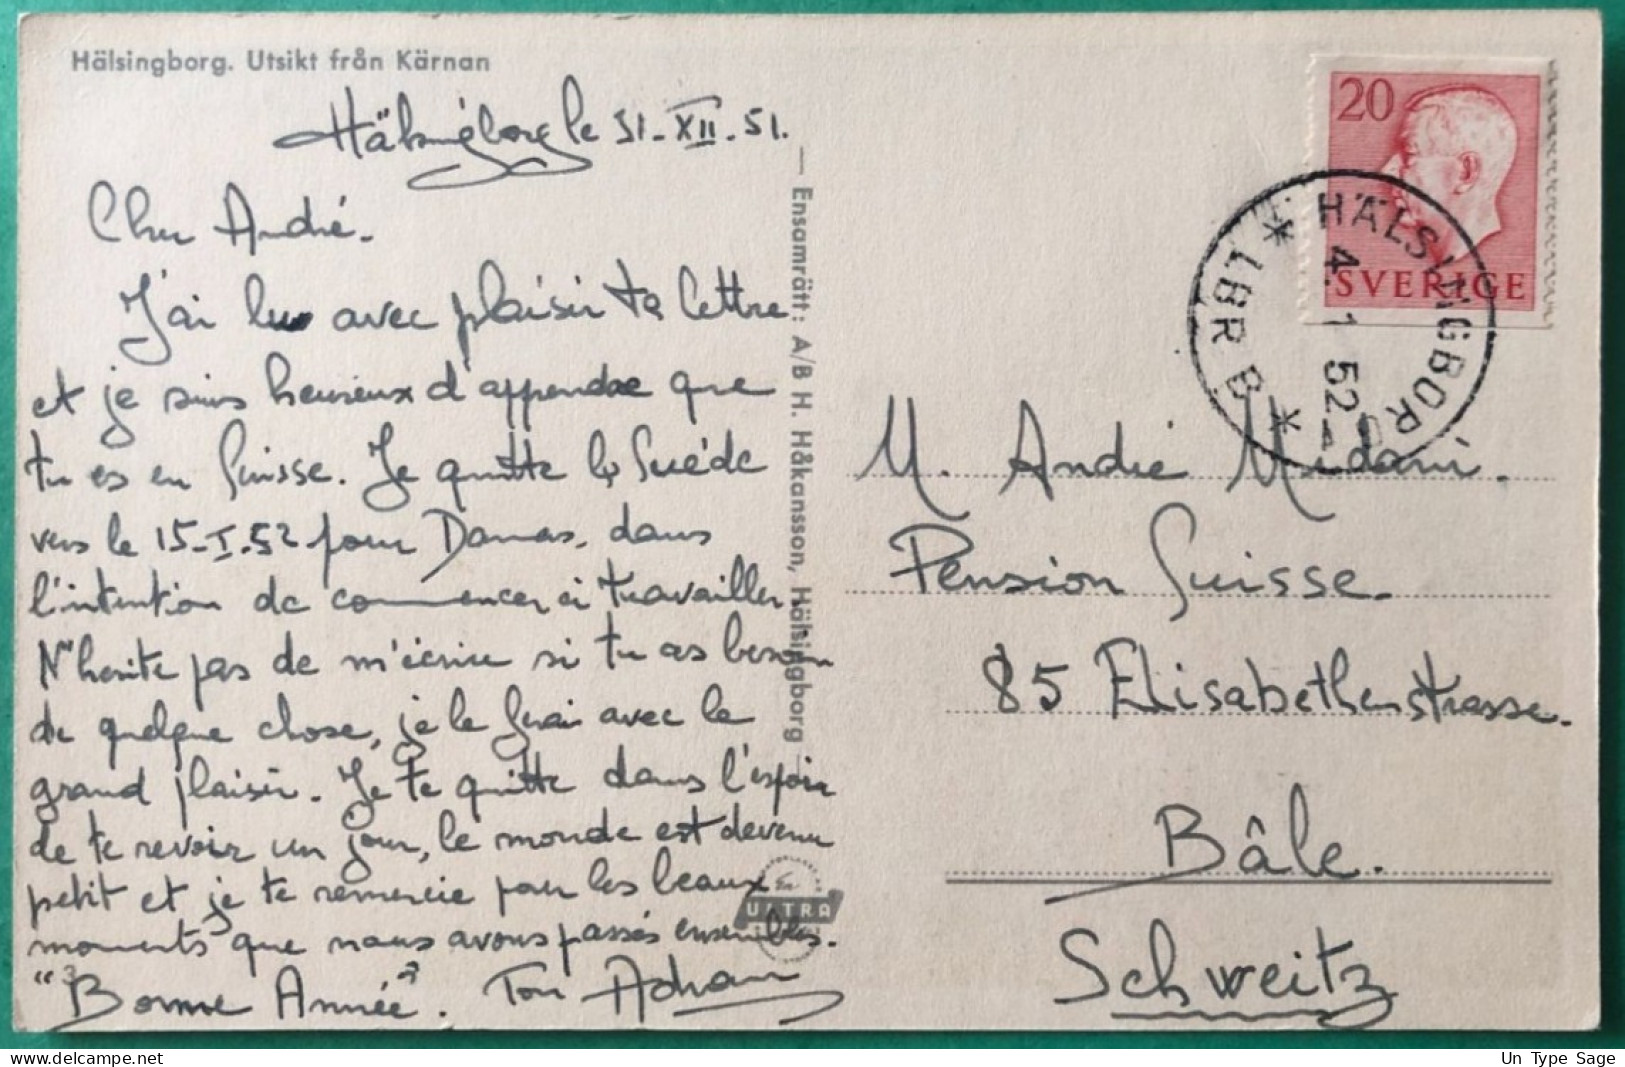 Hälsingborg. Utsikt från Kärnan
Hälsingborg le 31-XII-51.
Cher André.
J'ai lu avec plaisir ta lettre
et je suis heureux d'appendre que
tu es en Suisse. Je quitte la Suède
vers le 15-I-52 pour Damas, dans
l'intention de commencer à travailler.
N'hesite pas de m'écrire si tu as besoin
de quelque chose, je le ferai avec le
grand plaisir. Je te quitte dans l'espoir
de te revoir un jour, le monde est devenu
petit et je te remercie pour les beaux
moments que nous avons passés ensembles.
"Bonne Année". Ton Adnan
Ensamrätt: A/B H. Håkansson, Hälsingborg
ULTRA
20
SVERIGE
* HÄLSINGBORG * LBR B
4. 1 52
M. André Midani.
Pension Suisse.
85 Elisabethenstrasse.
Bâle.
Schweitz
Un Type Sage
www.delcampe.net